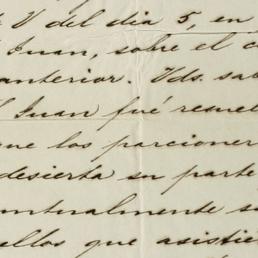 V del dia 5, en
Juan, sobre el c
anterior. Vds. sab
Juan fué resuel
que los parcioner
desierta su parte
untualmente s
ellos que asistié